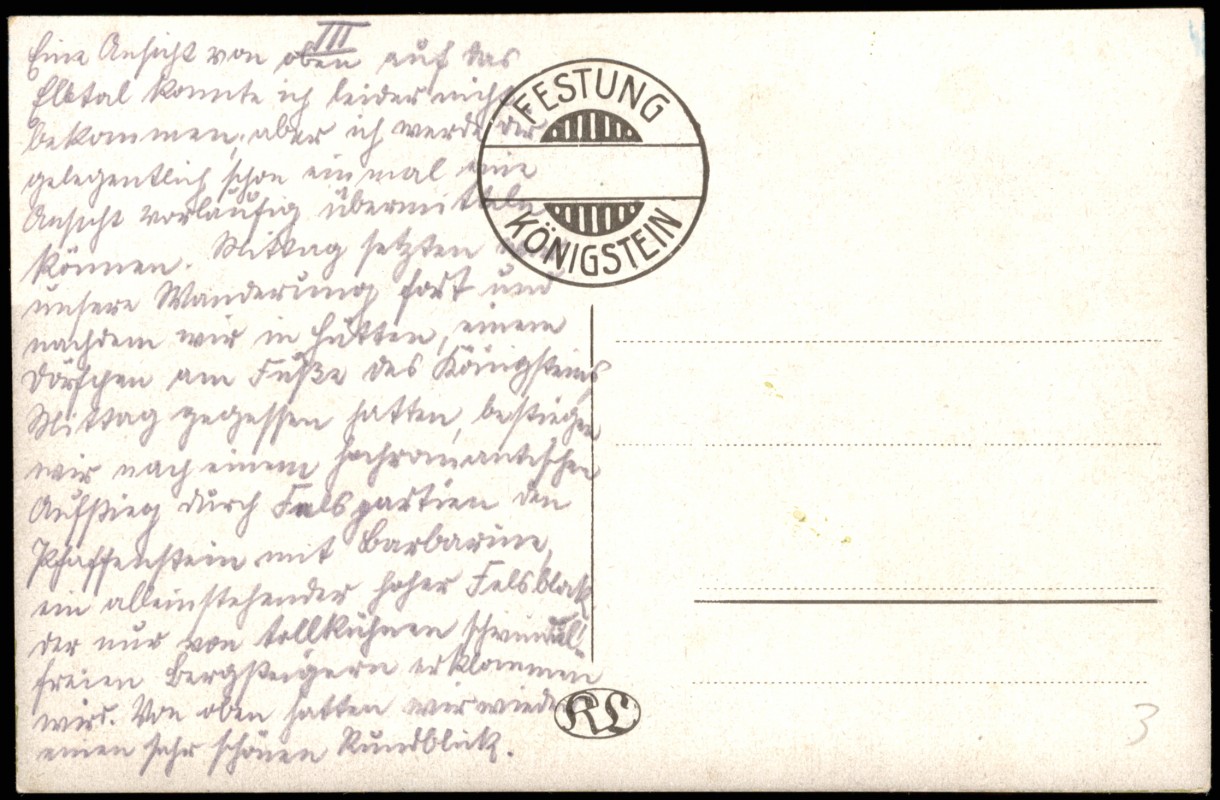 III
Eine Ansicht von oben auf das
Elbtal konnte ich leider nicht
bekommen, aber ich werde dir
gelegentlich schon einmal eine
Ansicht vorläufig übermitteln
können. Mittag setzten wir
unsere Wanderung fort und
nachdem wir in Hütten, einem
Dörfchen am Fuße des Königsteins
Mittag gegessen hatten, bestiegen
wir nach einem hochromantischen
Aufstieg durch Felspartien den
Pfaffenstein mit Barbarine,
ein alleinstehender hoher Felsblock
der nur von tollkühnen schwindel-
freien Bergsteigern erklommen
wird. Von oben hatten wir wieder
einen sehr schönen Rundblick.
FESTUNG
KÖNIGSTEIN
RL
3